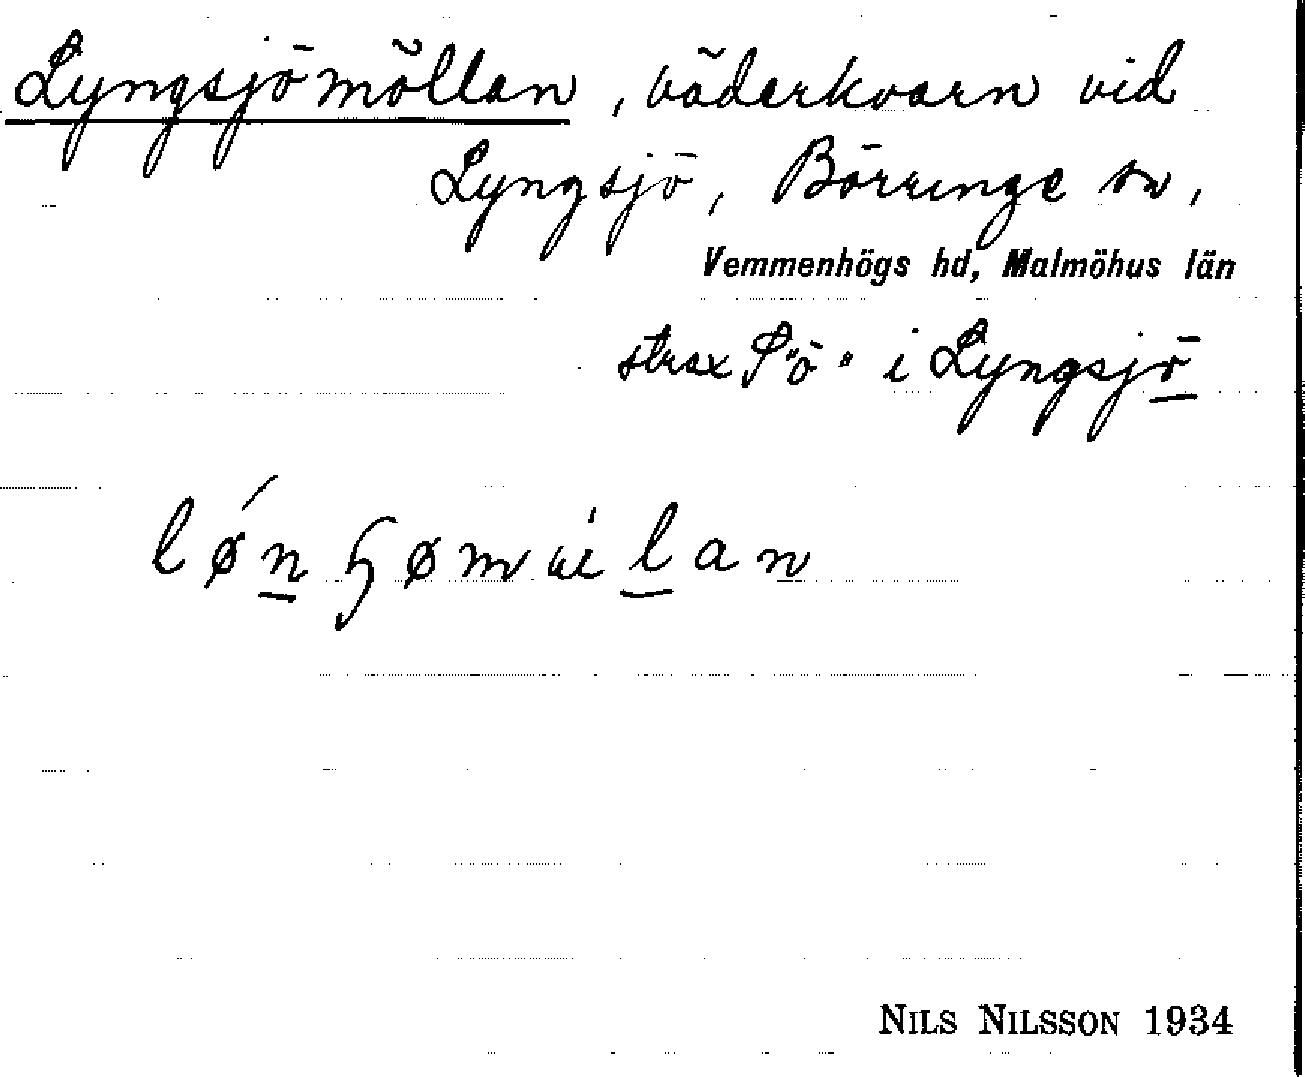 Lyngsjömöllan, väderkvarn vid
Lyngsjö, Börringe sn,
Vemmenhögs hd, Malmöhus län
strax S "ö" i Lyngsjö
NILS NILSSON 1934